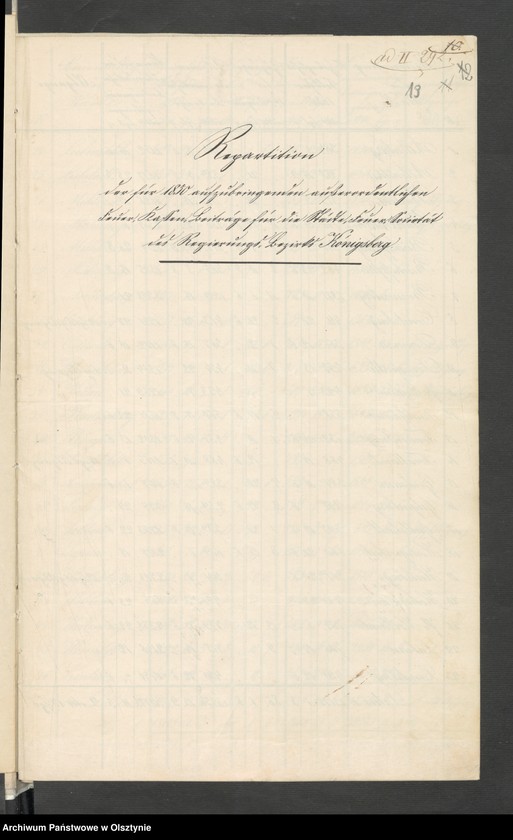 ad II 292.
10
12
13
Repartition
der für 1870 aufzubringenden außerordentlichen
Feuer-Kassen-Beiträge für die Städte-Feuer-Societät
des Regierungs-Bezirks Königsberg.
Archiwum Państwowe w Olsztynie